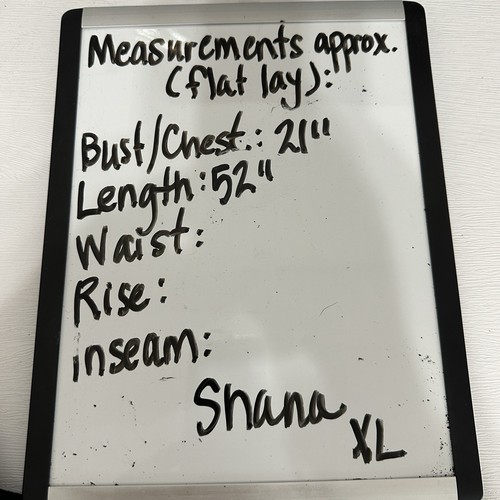 Measurements approx.
(flat lay):
Bust/Chest.: 21"
Length: 52"
Waist:
Rise:
inseam:
Shana
XL